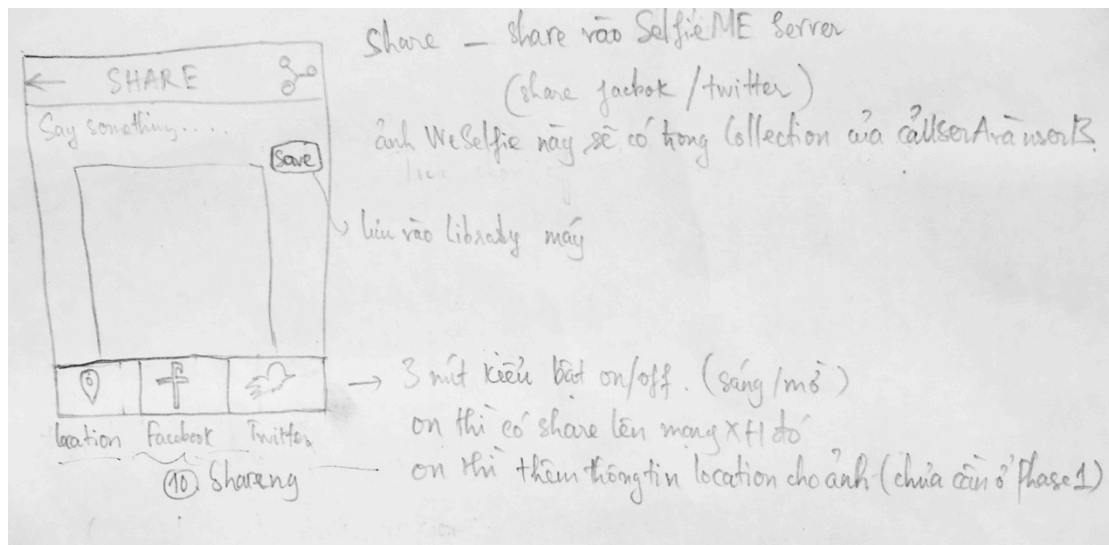 SHARE
Say something....
Save
Location Facebook Twitter
10 Shareng
Share – share vào SelfieME Server
(share facbok / twitter)
ảnh WeSelfie này sẽ có trong Collection của cả UserA và userB.
lưu vào Library máy
→ 3 nút kiểu bật on/off. (sáng/mờ)
on thì có share lên mạng XH đó
on thì thêm thông tin location cho ảnh (chưa cần ở Phase 1)